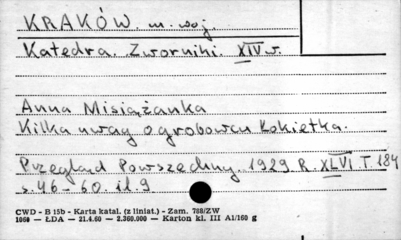 KRAKÓW. m. woj.
Katedra. Zworniki. XIV w.
Anna Misiążanka
Kilka uwag o grobowcu Łokietka.
Przegląd Powszechny. 1929 R. XLVI T. 184
s. 46 - 60. il. 9
CWD - B 15b - Karta katal. (z liniat.) - Zam. 768/ZW
1060 — ŁDA — 21.4.60 — 2.360.000 — Karton kl. III A1/160 g